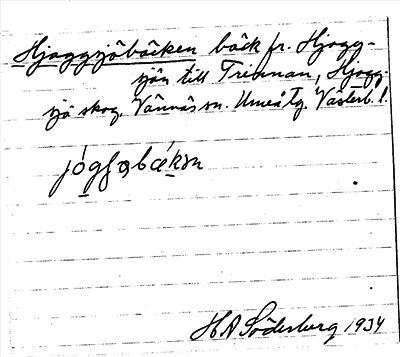 Hjoggsjöbäcken bäck fr. Hjogg-
sjön till Trinnan, Hjogg-
sjö skog, Vännäs sn. Umeå Tg. Västerb. l.
H A Söderberg 1934